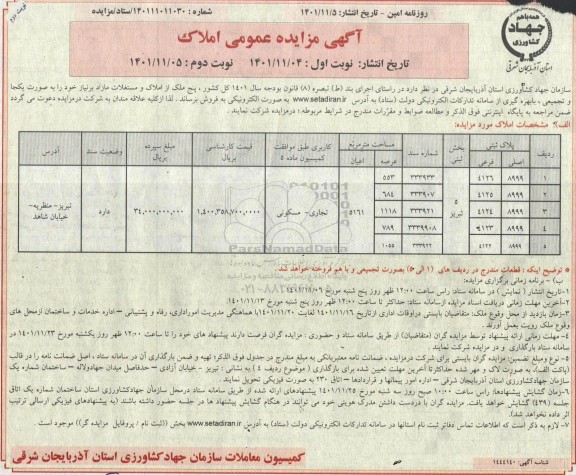 روزنامه امین - تاریخ انتشار: ۱۴۰۱/۱۱/۵
شماره: ۱۴۰۱۱۱۰۱۱۰۳۰/ستاد/مزایده
نوبت دوم
همه با هم
جهاد
کشاورزی
استان آذربایجان شرقی
آگهی مزایده عمومی املاک
تاریخ انتشار: نوبت اول: ۱۴۰۱/۱۱/۰۴ نوبت دوم: ۱۴۰۱/۱۱/۰۵
سازمان جهاد کشاورزی استان آذربایجان شرقی در نظر دارد در راستای اجرای بند (ط) تبصره (۸) قانون بودجه سال ۱۴۰۱ کل کشور، پنج ملک از املاک و مستغلات مازاد برنیاز خود را به صورت یکجا
و تجمیعی، بابهره گیری از سامانه تدارکات الکترونیکی دولت (ستاد) به آدرس www.setadiran.ir به صورت الکترونیکی به فروش برساند. لذا ازکلیه علاقه مندان به شرکت درمزایده دعوت می گردد
ضمن مراجعه به پایگاه اینترنتی فوق الذکر و مطالعه ضوابط و مقررات مندرج در شرایط مربوطه: درمزایده شرکت نمایند.
الف)* مشخصات املاک مورد مزایده:
ردیف | پلاک ثبتی | بخش ثبتی | شماره سند | مساحت مترمربع | کاربری طبق موافقت کمیسیون ماده ۵ | قیمت کارشناسی بریال | مبلغ سپرده بریال | وضعیت سند | آدرس
اصلی | فرعی | عرصه | اعیان
۱ | ۸۹۹۹ | ۴۱۲۶ | ۵ تبریز | ۳۳۳۹۳۳ | ۵۵۳ | ۵۱۶۱ | تجاری- مسکونی | ۱,۴۰۰,۳۵۸,۷۰۰,۰۰۰ | ۳۴,۰۰۰,۰۰۰,۰۰۰ | دارد | تبریز- منظریه- خیابان شاهد
۲ | ۸۹۹۹ | ۴۱۲۵ | ۳۳۳۹۰۷ | ۶۸۴
۳ | ۸۹۹۹ | ۴۱۲۴ | ۳۳۳۹۲۱ | ۱۱۱۸
۴ | ۸۹۹۹ | ۴۱۲۳ | ۳۳۳۹۹۰۸ | ۷۸۹
۵ | ۸۹۹۹ | ۴۱۲۲ | ۳۳۳۹۲۲ | ۱۰۵۵
ParsNamadData
۰۲۱-۸۸۳۴۹۶۷۰
* توضیح اینکه: قطعات مندرج در ردیف های (۱ الی ۵) بصورت تجمیعی و با هم فروخته خواهد شد.
ب) - برنامه زمانی برگزاری مزایده:
۱-تاریخ انتشار (نمایش) در سامانه ستاد: راس ساعت ۱۲:۰۰ ظهر روز پنج شنبه مورخ ۱۴۰۱/۱۱/۰۶
۲-آخرین مهلت زمانی دریافت اسناد مزایده ازسامانه ستاد: حداکثر تا ساعت ۱۲:۰۰ ظهر روز پنج شنبه مورخ ۱۴۰۱/۱۱/۱۳
۳-زمان بازدید از محل وقوع ملک: متقاضیان بایستی دراوقات اداری ازتاریخ ۱۴۰۱/۱۱/۱۶ لغایت ۱۴۰۱/۱۱/۲۰ باهماهنگی مدیریت اموراداری، رفاه و پشتیبانی – اداره خدمات و ساختمان ازمحل های
وقوع ملک رویت بعمل آورند.
۴- مهلت زمانی ارائه پیشنهاد توسط مزایده گران (متقاضیان) از طریق سامانه ستاد و حضوری: مزایده گران فرصت دارند پیشنهاد های خود را تا ساعت ۱۲:۰۰ ظهر روز یکشنبه مورخ ۱۴۰۱/۱۱/۲۳ در
سامانه ستاد بارگذاری و در مزایده شرکت نمایند.
۵- نوع ومبلغ تضمین: مزایده گران بایستی برای شرکت درمزایده، ضمانت نامه معتبربانکی به مبلغ مندرج در جدول فوق الذکر؛ تهیه و ضمن بارگذاری آن در سامانه ستاد، اصل ضمانت نامه را در قالب
(پاکت الف)، به صورت لاک و مهر شده حداکثرتا آخرین مهلت تعیین شده برای بارگذاری (موضوع ردیف ۴) به نشانی: تبریز – خیابان آزادی – حدفاصل میدان جهادولاله – ساختمان شماره یک
سازمان جهادکشاورزی استان آذربایجان شرقی – اداره امور پیمانها و قراردادها – اتاق ۲۳۰ به صورت فیزیکی تحویل نمایند.
۶-زمان گشایش پیشنهادها: راس ساعت ۱۰:۰۰ صبح روز سه شنبه مورخ ۱۴۰۱/۱۱/۲۵ پیشنهادهای ارائه شده از طریق سامانه ستاد درمحل سازمان جهادکشاورزی استان ساختمان شماره یک اتاق
جلسه (۴۳۹) گشایش خواهد یافت. مزایده گران با دردست داشتن مدرک هویتی خود می توانند در هنگام گشایش پیشنهاد ها در جلسه حضور داشته باشند (به پیشنهادهای فیزیکی ارسالی ترتیب
اثر داده نخواهد شد).
۷- لازم به ذکر است که اطلاعات تماس دفاتر ثبت نام استانها در سامانه تدارکات الکترونیکی دولت (ستاد) به آدرس www.setadiran.ir بخش ((ثبت نام / پروفایل مزایده گر)) موجود است.
کمیسیون معاملات سازمان جهاد کشاورزی استان آذربایجان شرقی
شناسه آگهی: ۱۴۴۴۱۴۰